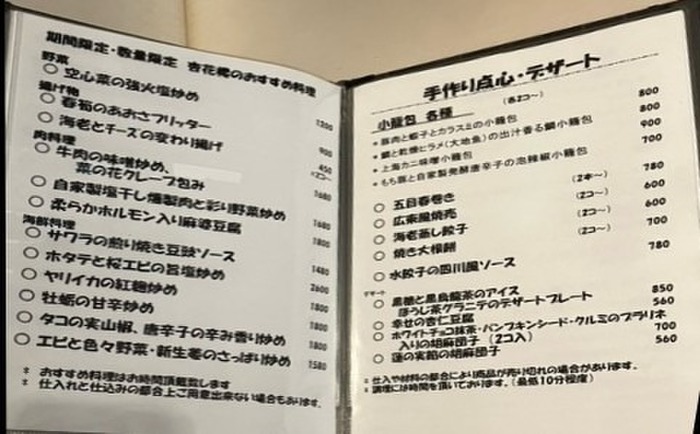 期間限定・数量限定 杏花楼のおすすめ料理
野菜
○ 空心菜の強火塩炒め 1300
揚げ物
○ 春筍のあおさフリッター 900
○ 海老とチーズの変わり揚げ 450 ※2コ〜
肉料理
○ 牛肉の味噌炒め、
菜の花クレープ包み 1680
○ 自家製塩干し燻製肉と彩り野菜炒め 1680
○ 柔らかホルモン入り麻婆豆腐 1800
海鮮料理
○ サワラの煎り焼き豆豉ソース 1480
○ ホタテと桜エビの旨塩炒め 2600
○ ヤリイカの紅麹炒め 1800
○ 牡蛎の甘辛炒め 1800
○ タコの実山椒、唐辛子の辛み香り炒め 1800
○ エビと色々野菜・新生姜のさっぱり炒め 1580
＊ おすすめ料理はお時間頂戴致します
＊ 仕入れと仕込みの都合上ご用意出来ない場合もあります。
手作り点心・デザート
小籠包 各種 (各2コ〜)
＊豚肉と蝦子とカラスミの小籠包 800
＊鯛と乾燥ヒラメ(大地魚)の出汁香る鯛小籠包 800
＊上海カニ味噌小籠包 900
＊もち豚と自家製発酵唐辛子の泡辣椒小籠包 700
○ 五目春巻き (2本〜) 780
○ 広東風焼売 (2コ〜) 600
○ 海老蒸し餃子 (2コ〜) 600
○ 焼き大根餅 (2コ〜) 700
○ 水餃子の四川風ソース 780
デザート
○ 黒糖と黒烏龍茶のアイス
ほうじ茶グラニテのデザートプレート 850
○ 幸せの杏仁豆腐 560
○ ホワイトチョコ抹茶・パンプキンシード・クルミのプラリネ
入りの胡麻団子 (2コ入) 700
○ 蓮の実餡の胡麻団子 560
＊仕入や材料の都合により商品が売り切れの場合があります。
＊調理には時間を頂いております。(最低10分程度)